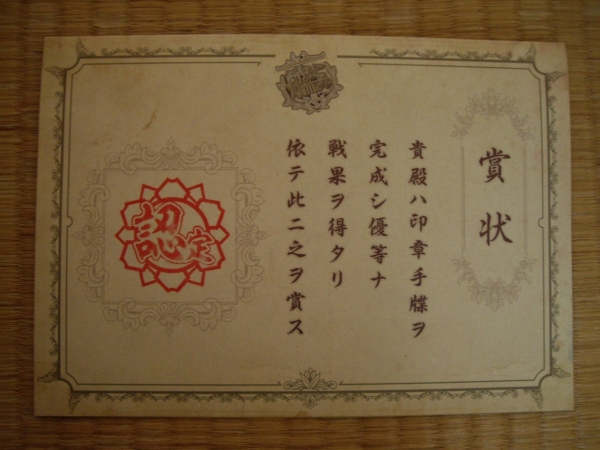 賞状
貴殿ハ印章手牒ヲ
完成シ優等ナ
戦果ヲ得タリ
依テ此ニ之ヲ賞ス
認定